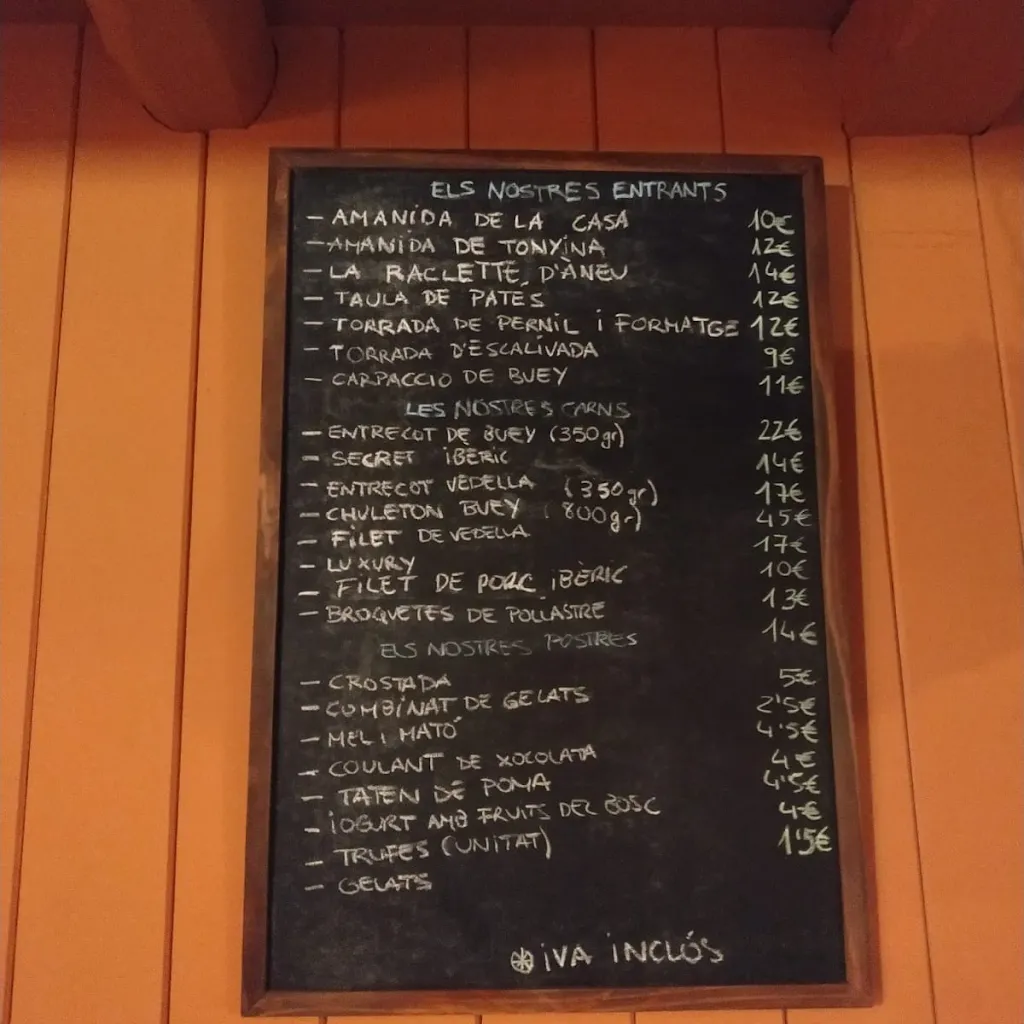 ELS NOSTRES ENTRANTS
- AMANIDA DE LA CASA 10€
- AMANIDA DE TONYINA 12€
- LA RACLETTE D'ÀNEU 14€
- TAULA DE PATÉS 12€
- TORRADA DE PERNIL i FORMATGE 12€
- TORRADA D'ESCALIVADA 9€
- CARPACCIO DE BUEY 11€
LES NOSTRES CARNS
- ENTRECOT DE BUEY (350gr) 22€
- SECRET IBÈRIC 14€
- ENTRECOT VEDELLA (350gr) 17€
- CHULETON BUEY (800gr) 45€
- FILET DE VEDELLA 17€
- LUXURY 10€
- FILET DE PORC IBÈRIC 13€
- BROQUETES DE POLLASTRE 14€
ELS NOSTRES POSTRES
- CROSTADA 5€
- COMBINAT DE GELATS 2'5€
- MEL i MATÓ 4'5€
- COULANT DE XOCOLATA 4€
- TATEN DE POMA 4'5€
- IOGURT AMB FRUITS DEL BOSC 4€
- TRUFES (UNITAT) 1'5€
- GELATS
* IVA INCLÓS